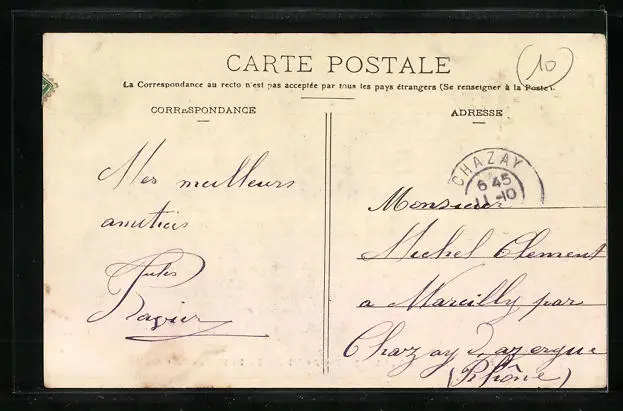 CARTE POSTALE
(10)
La Correspondance au recto n'est pas acceptée par tous les pays étrangers (Se renseigner à la Poste).
CORRESPONDANCE
ADRESSE
CHAZAY
6 45
11 -10
Mes meilleurs
amitiés
Jules
Ragier
Monsieur
Michel Clement
a Marcilly par
Chazay d'azergue
(Rhône)